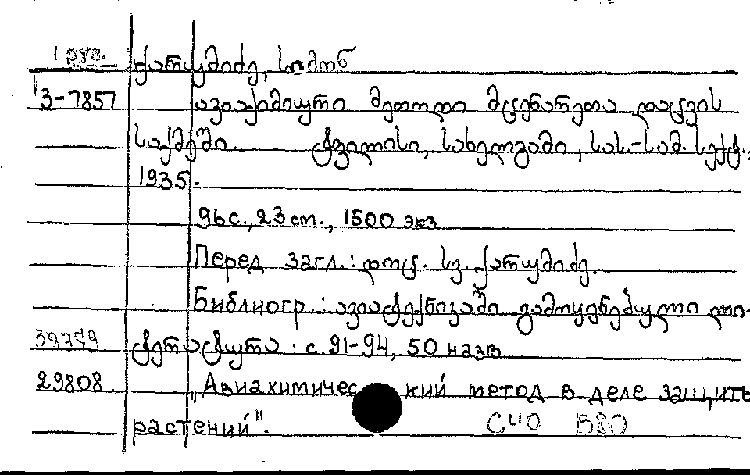 1 груз.
ქარუმიძე, სიმონ
3-7857 ავიაქიმიური მეთოდი მცენარეთა დაცვის
საქმეში. ტფილისი, სახელგამი, სას.-სამ. სექტ.,
1935.
96 с., 23 см., 1500 экз
Перед загл.: დოც. სვ. ქარუმიძე.
Библиогр.: ავიატექნიკაში გამოყენებული ლი-
39779 ტერატურა. с. 91-94, 50 назв
29808 „Авиахимический метод в деле защиты
растений".